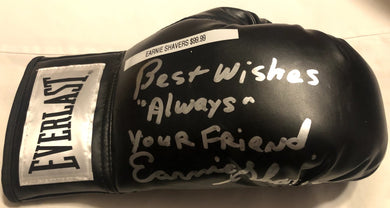 EARNIE SHAVERS $99.99
Best Wishes
"Always"
Your Friend
Earnie
EVERLAST